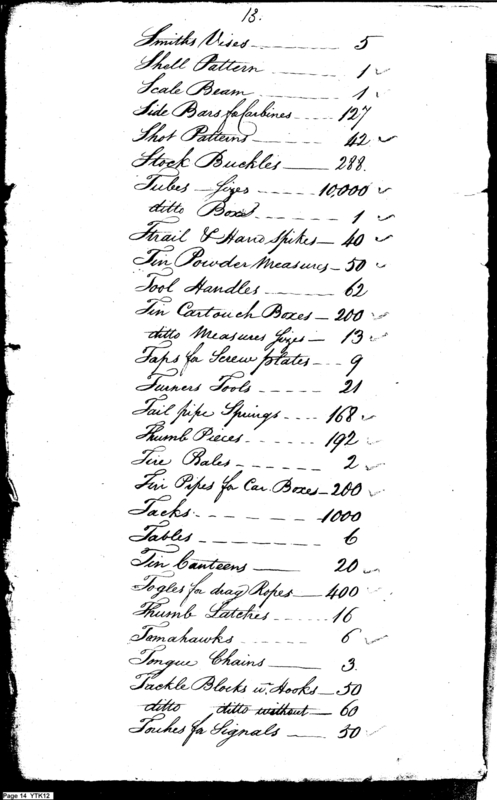 13.
Smiths Vises 5
Shell Pattern 1
Scale Beam 1
Side Bars for Carbines 127
Shot Patterns 42
Stock Buckles 288.
Tubes Sizes 10,000
ditto Boxes 1
Trail & Hand Spikes 40
Tin Powder Measures 50
Tool Handles 62
Tin Cartouch Boxes 200
ditto Measures Sizes 13
Taps for Screw plates 9
Turners Tools 21
Tail pipe Springs 168
Thumb Pieces 192
Tire Bales 2
Tin Pipes for Car. Boxes 200
Tacks 1000
Tables 6
Tin Canteens 20
Togles for drag Ropes 400
Thumb Latches 16
Tomahawks 6
Tongue Chains 3
Tackle Blocks w. Hooks 50
ditto ditto without 60
Torches for Signals 50
Page 14 YTK12